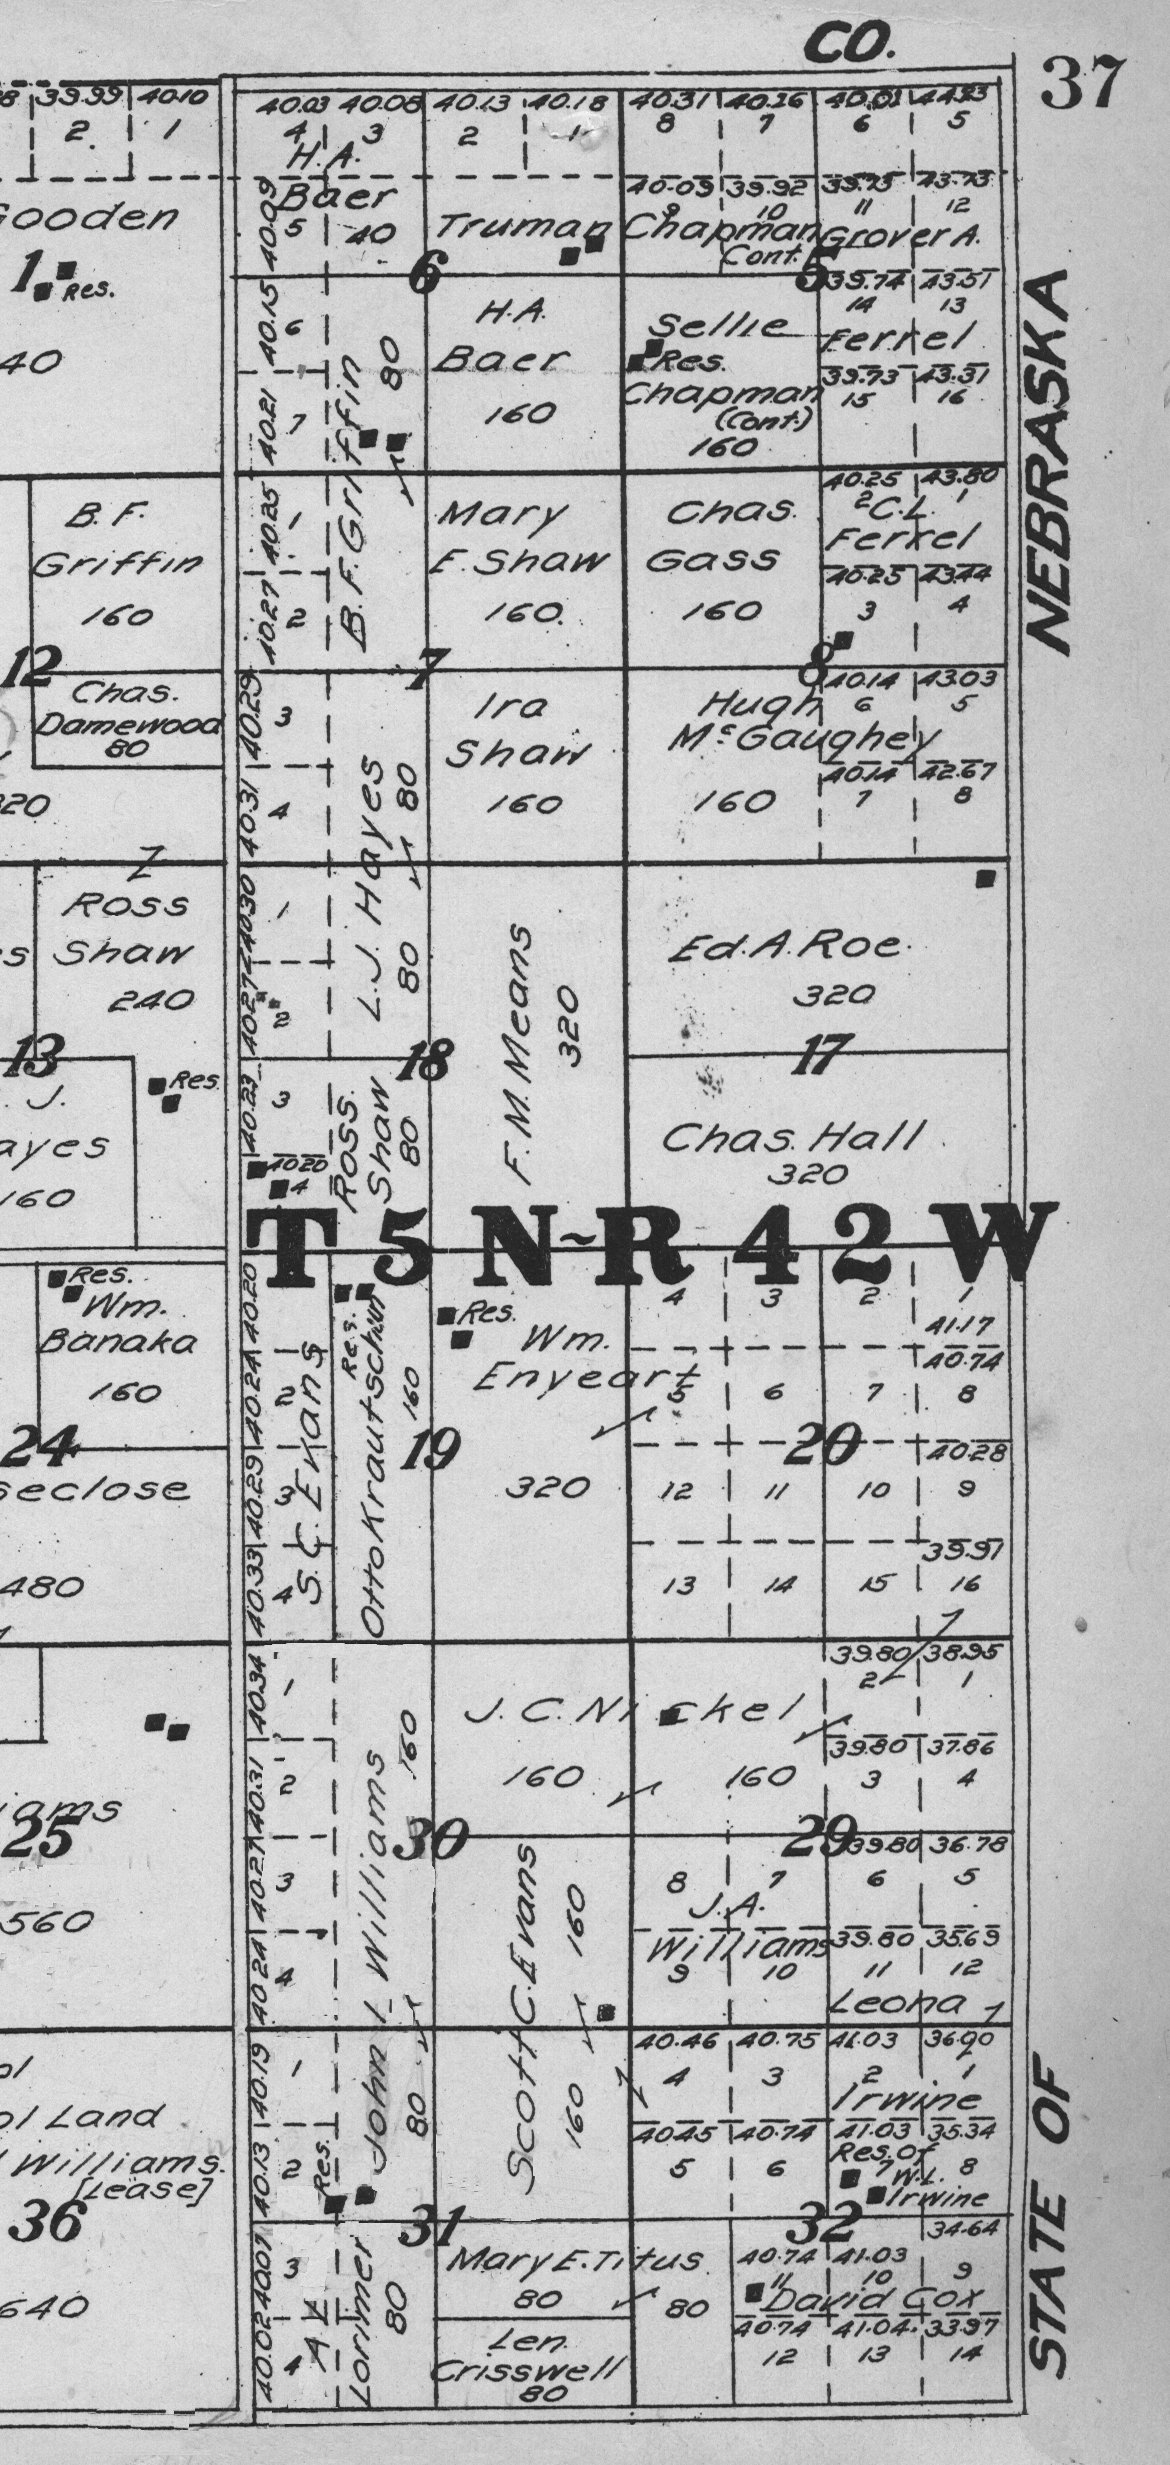 CO.
37
39.99 40.10
2 1
40.03 40.08 40.13 40.18 40.31 40.26 40.01 44.23
4 3 2 1 8 7 6 5
H.A.
Baer
40
40.09
5
Truman
40.09 39.92 39.75 43.73
9 10 11 12
Chapman
Cont.
Grover A.
Gooden
1
Res.
40
6
5
40.15
6
40.21
7
80
H.A.
Baer
160
Sellie
Res.
Chapman
(Cont.)
160
39.74 43.51
14 13
Ferrel
39.73 43.31
15 16
NEBRASKA
B.F.
Griffin
160
40.25
1
40.27
2
B.F. Griffin
Mary
E. Shaw
160.
Chas.
Gass
160
40.25 43.80
2 1
C.L.
Ferrel
40.25 43.44
3 4
12
7
8
Chas.
Damewood
80
40.29
3
40.31
4
L.J. Hayes
80
80
Ira
Shaw
160
Hugh
McGaughey
160
40.14 43.03
6 5
40.14 42.67
7 8
Ross
Shaw
240
40.30
1
40.27
2
F.M. Means
320
Ed. A. Roe.
320
13
18
17
J.
ayes
160
Res.
40.23
3
40.20
4
Ross.
Shaw
80
Chas. Hall
320
T 5 N~R 42 W
Res.
Wm.
Banaka
160
40.20
40.24
2
40.29
3
40.33
4
S.C. Evans
Res.
Otto Krautschun
160
Res.
Wm.
Enyeart
320
4 3 2 1
41.17
40.74
5 6 7 8
40.28
12 11 10 9
39.97
13 14 15 16
24
19
20
seclose
480
40.34
1
40.31
2
40.27
3
40.24
4
John I. Williams
160
80
J.C. Nickel
160
160
39.80 38.95
2 1
39.80 37.86
3 4
iams
25
560
30
29
Scott C. Evans
160
160
39.80 36.78
8 7 6 5
J.A.
Williams
39.80 35.69
9 10 11 12
Leona
ol Land
Williams.
[Lease]
36
640
40.19
1
40.13
2
Res.
40.46 40.75 41.03 36.00
4 3 2 1
Irwine
40.45 40.74 41.03 35.34
5 6 7 8
Res. of
W.L.
Irwine
31
32
40.07
3
40.02
4
Lorimer
80
Mary E. Titus
80
80
Len.
Crisswell
80
34.64
40.74 41.03
11 10 9
David Cox
40.74 41.04 33.97
12 13 14
STATE OF